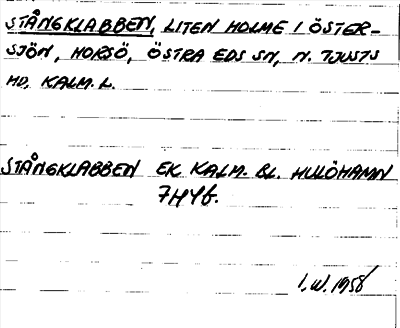 STÅNGKLABBEN, LITEN HOLME I ÖSTER-
SJÖN, HORSÖ, ÖSTRA EDS SN, N. TJUSTS
HD, KALM. L.
STÅNGKLABBEN EK KALM. BL. HULÖHAMN
7H4f.
I.W. 1958